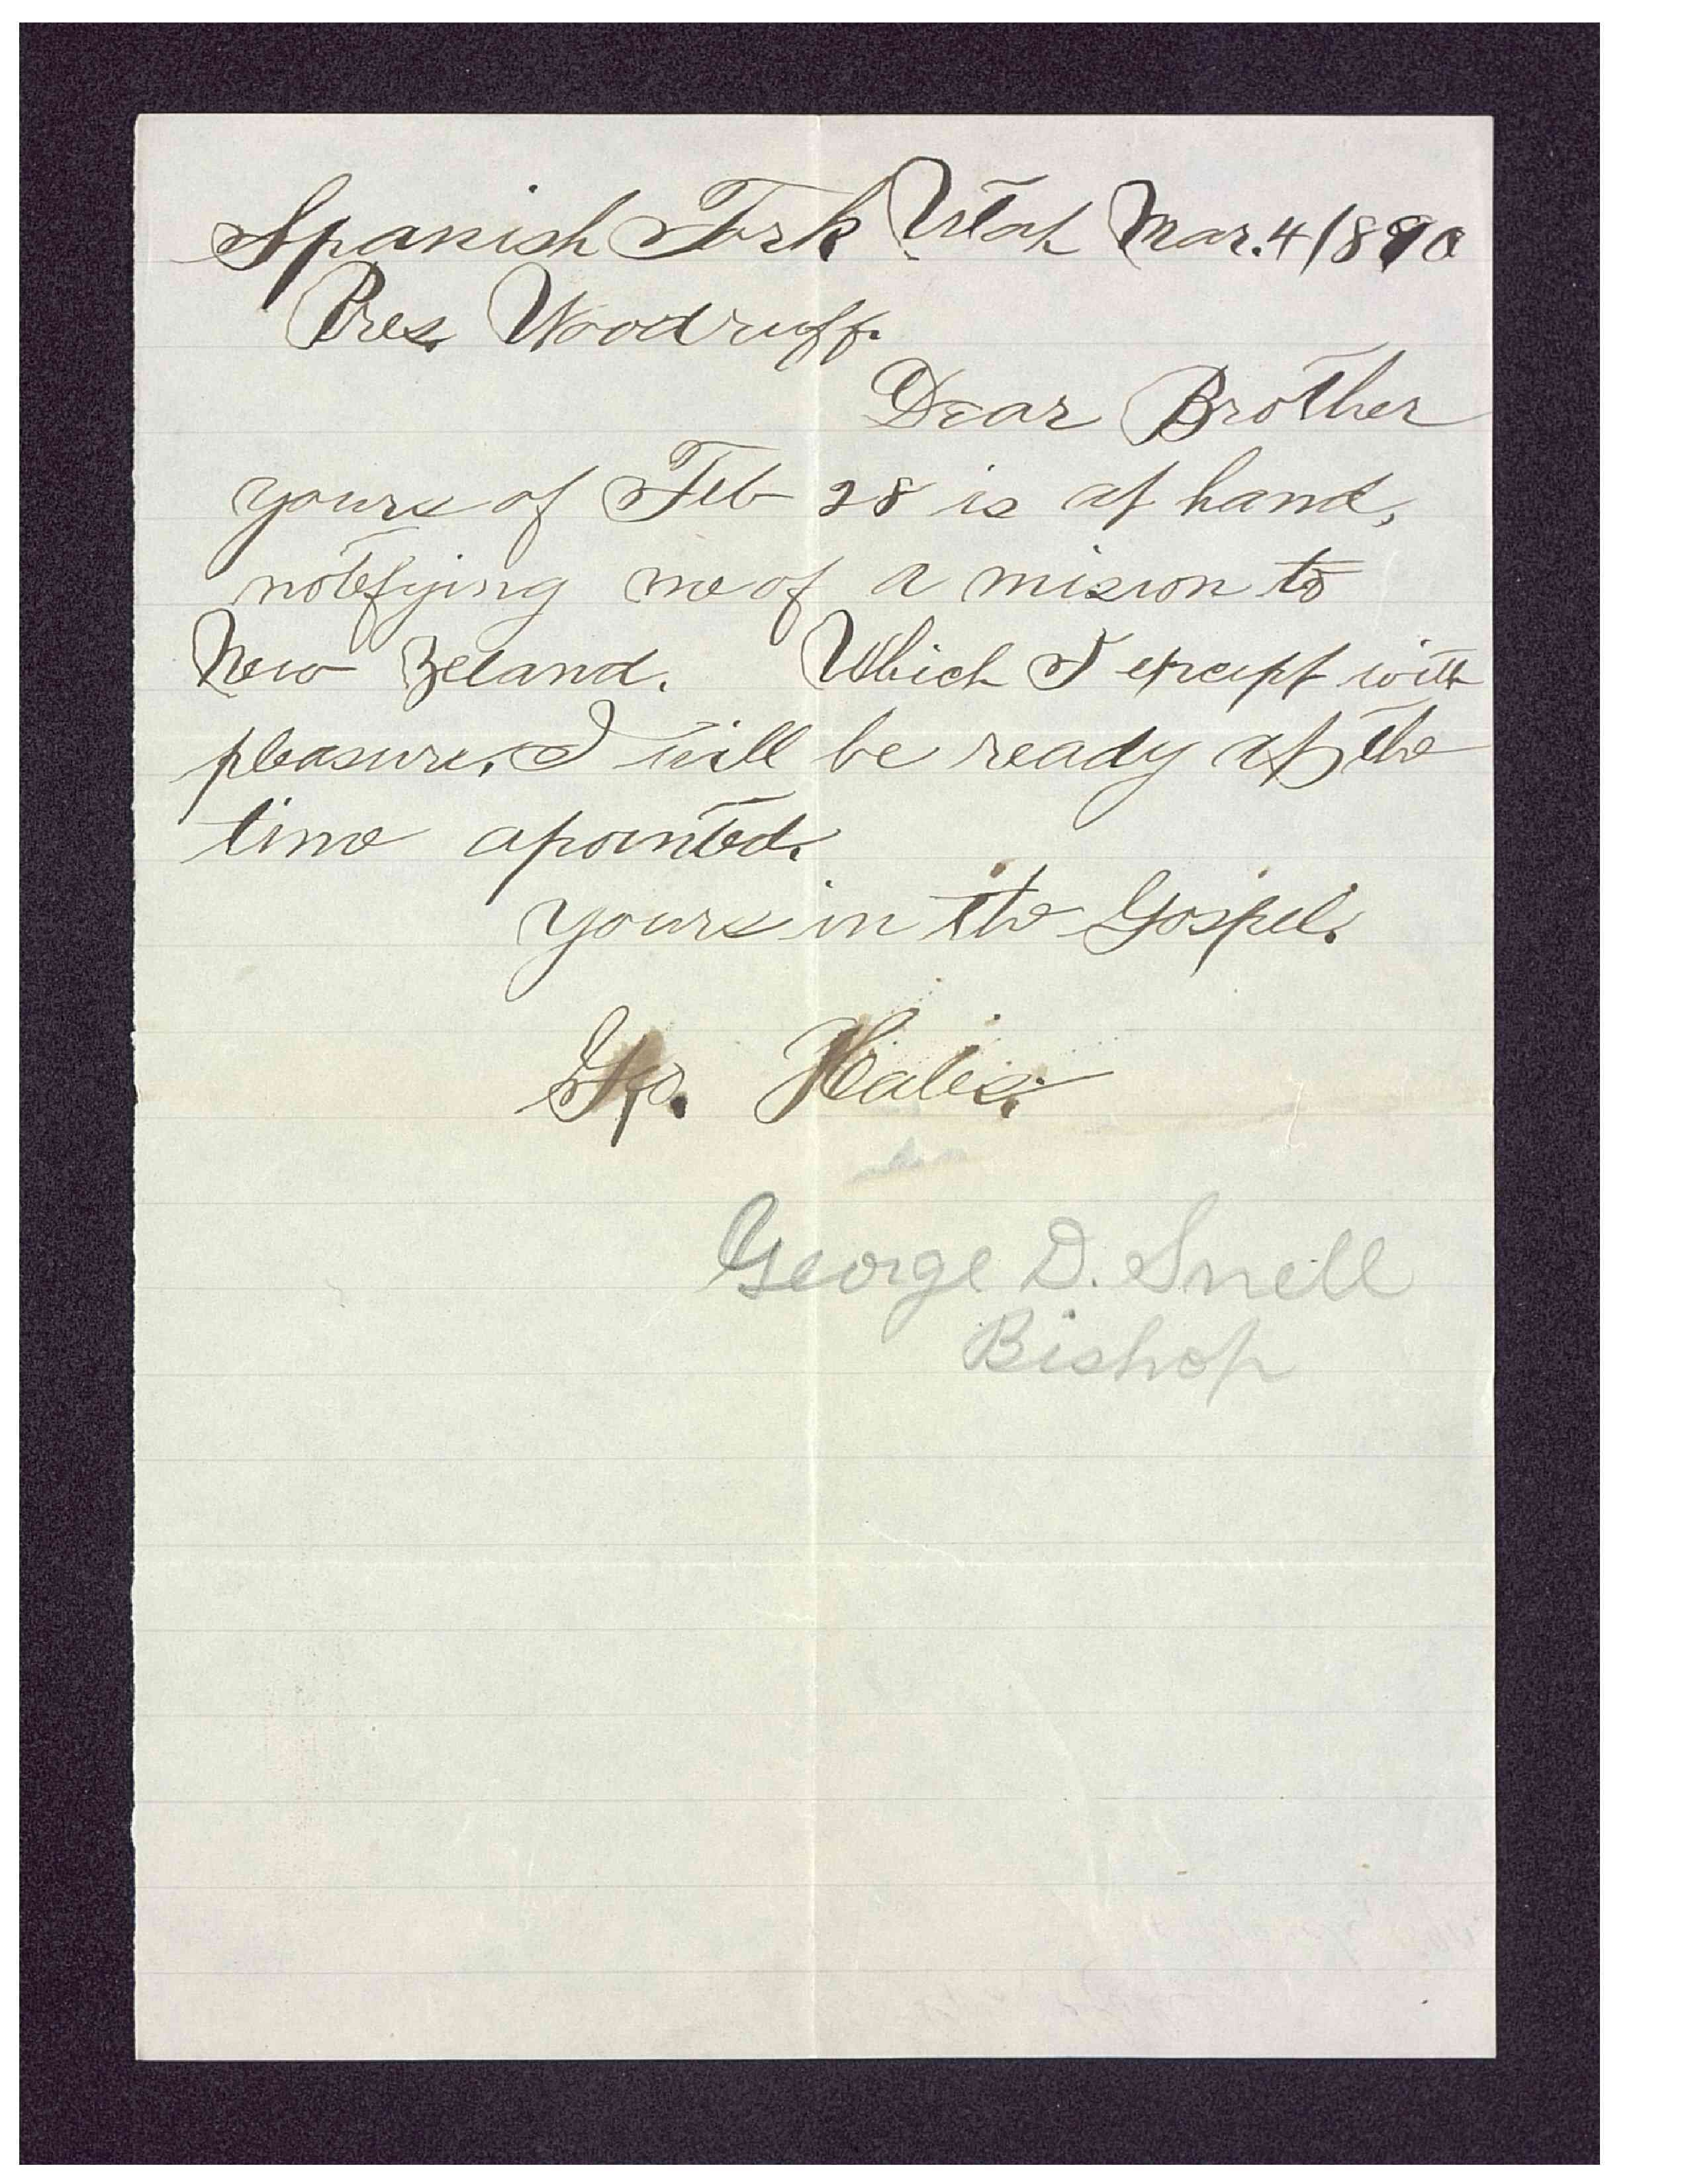 Spanish Fork Utah Mar. 4 1890
Pres. Woodruff.
Dear Brother
yours of Feb 28 is at hand,
notefying me of a mision to
New Zeland. Which I except with
pleasure. I will be ready at the
time apointed.
yours in the Gospel.
Hales.
George D. Snell
Bishop